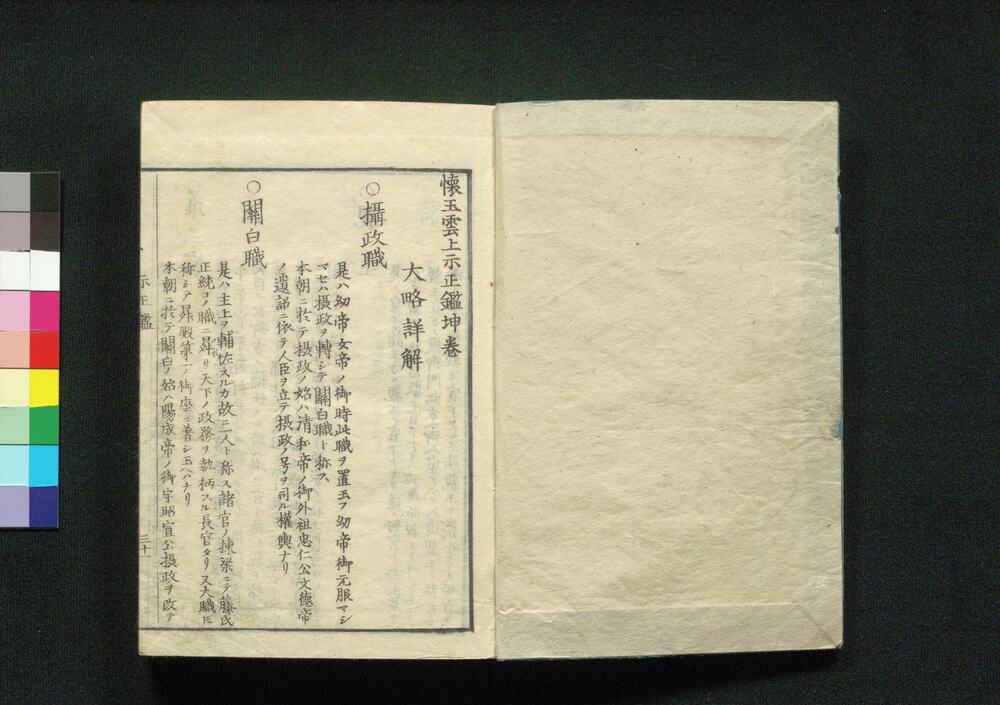 懐玉雲上示正鑑坤卷
大略詳解
○攝政職
是ハ幼帝女帝ノ御時此職ヲ置玉フ幼帝御元服マシ
マセハ摂政ヲ轉シテ關白職ト称ス
本朝ニ於テ摂政ノ始ハ清和帝ノ御外祖忠仁公文德帝
ノ遺詔ニ依テ人臣ヲ立テ摂政ノ号ヲ司ル權輿ナリ
○關白職
是ハ主上ヲ輔佐スルカ故ニ一人ト称ス諸官ノ棟梁ニテ藤氏
正統コノ職ニ昇リ天下ノ政務ヲ執柄スル長官タリ又大職ト
称シテ昇殿第一ノ御座ニ着シ玉ヘハナリ
本朝ニ於テ關白ノ始ハ陽成帝ノ御宇昭宣公摂政ヲ改テ
示正鑑
三十一